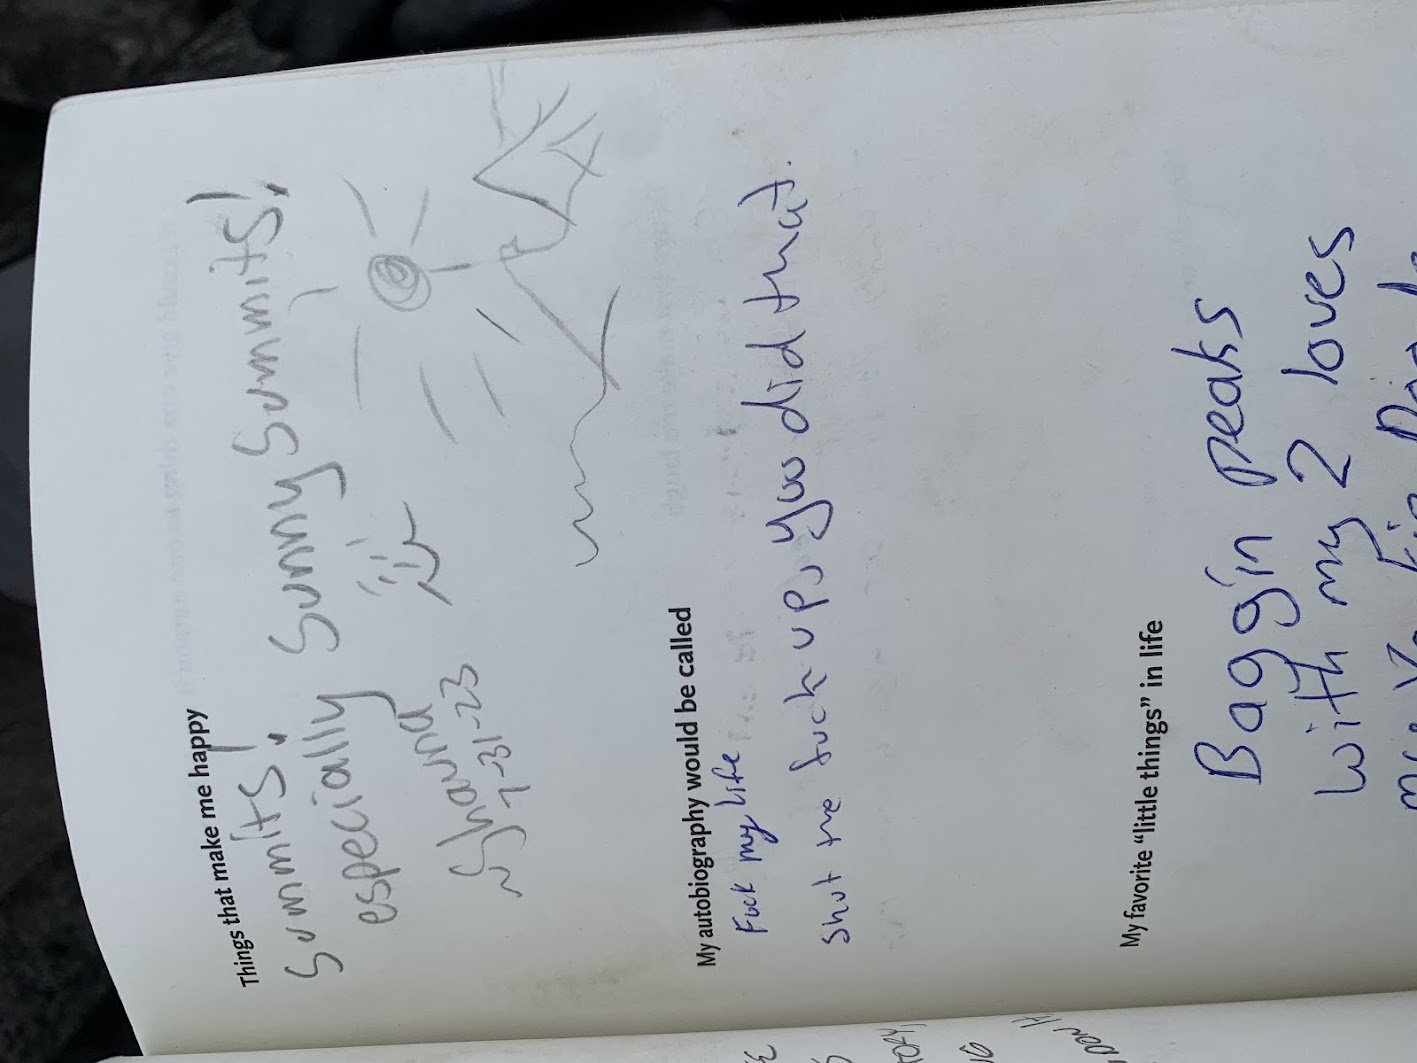 Things that make me happy
Summits!
especially Sunny Summits!
~Shawna
7-31-23
My autobiography would be called
Fuck my life
Shut the fuck up, you did that.
My favorite "little things" in life
Baggin peaks
with my 2 loves